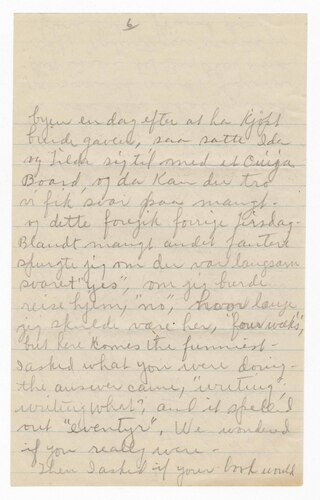 6
byen en dag efter at ha kjøbt
brude gaven, saa satte Ida
og Tilda sig til med et Ouija
Board, og da kan du tro
vi fik svar paa mangt.
og dette foregik forrige Tirsdag.
Blandt mangt andet
spurgte jeg om der var langsam
svaret "yes", om jeg burde
reise hjem, "no", hvor lange
jeg skulde være her, "four weeks",
but here komes the funniest -
I asked what you were doing -
the answer came, "writing",
writing what?, and it spelled
out "eventyr", We wondered
if you really were -
Then I asked if your book would